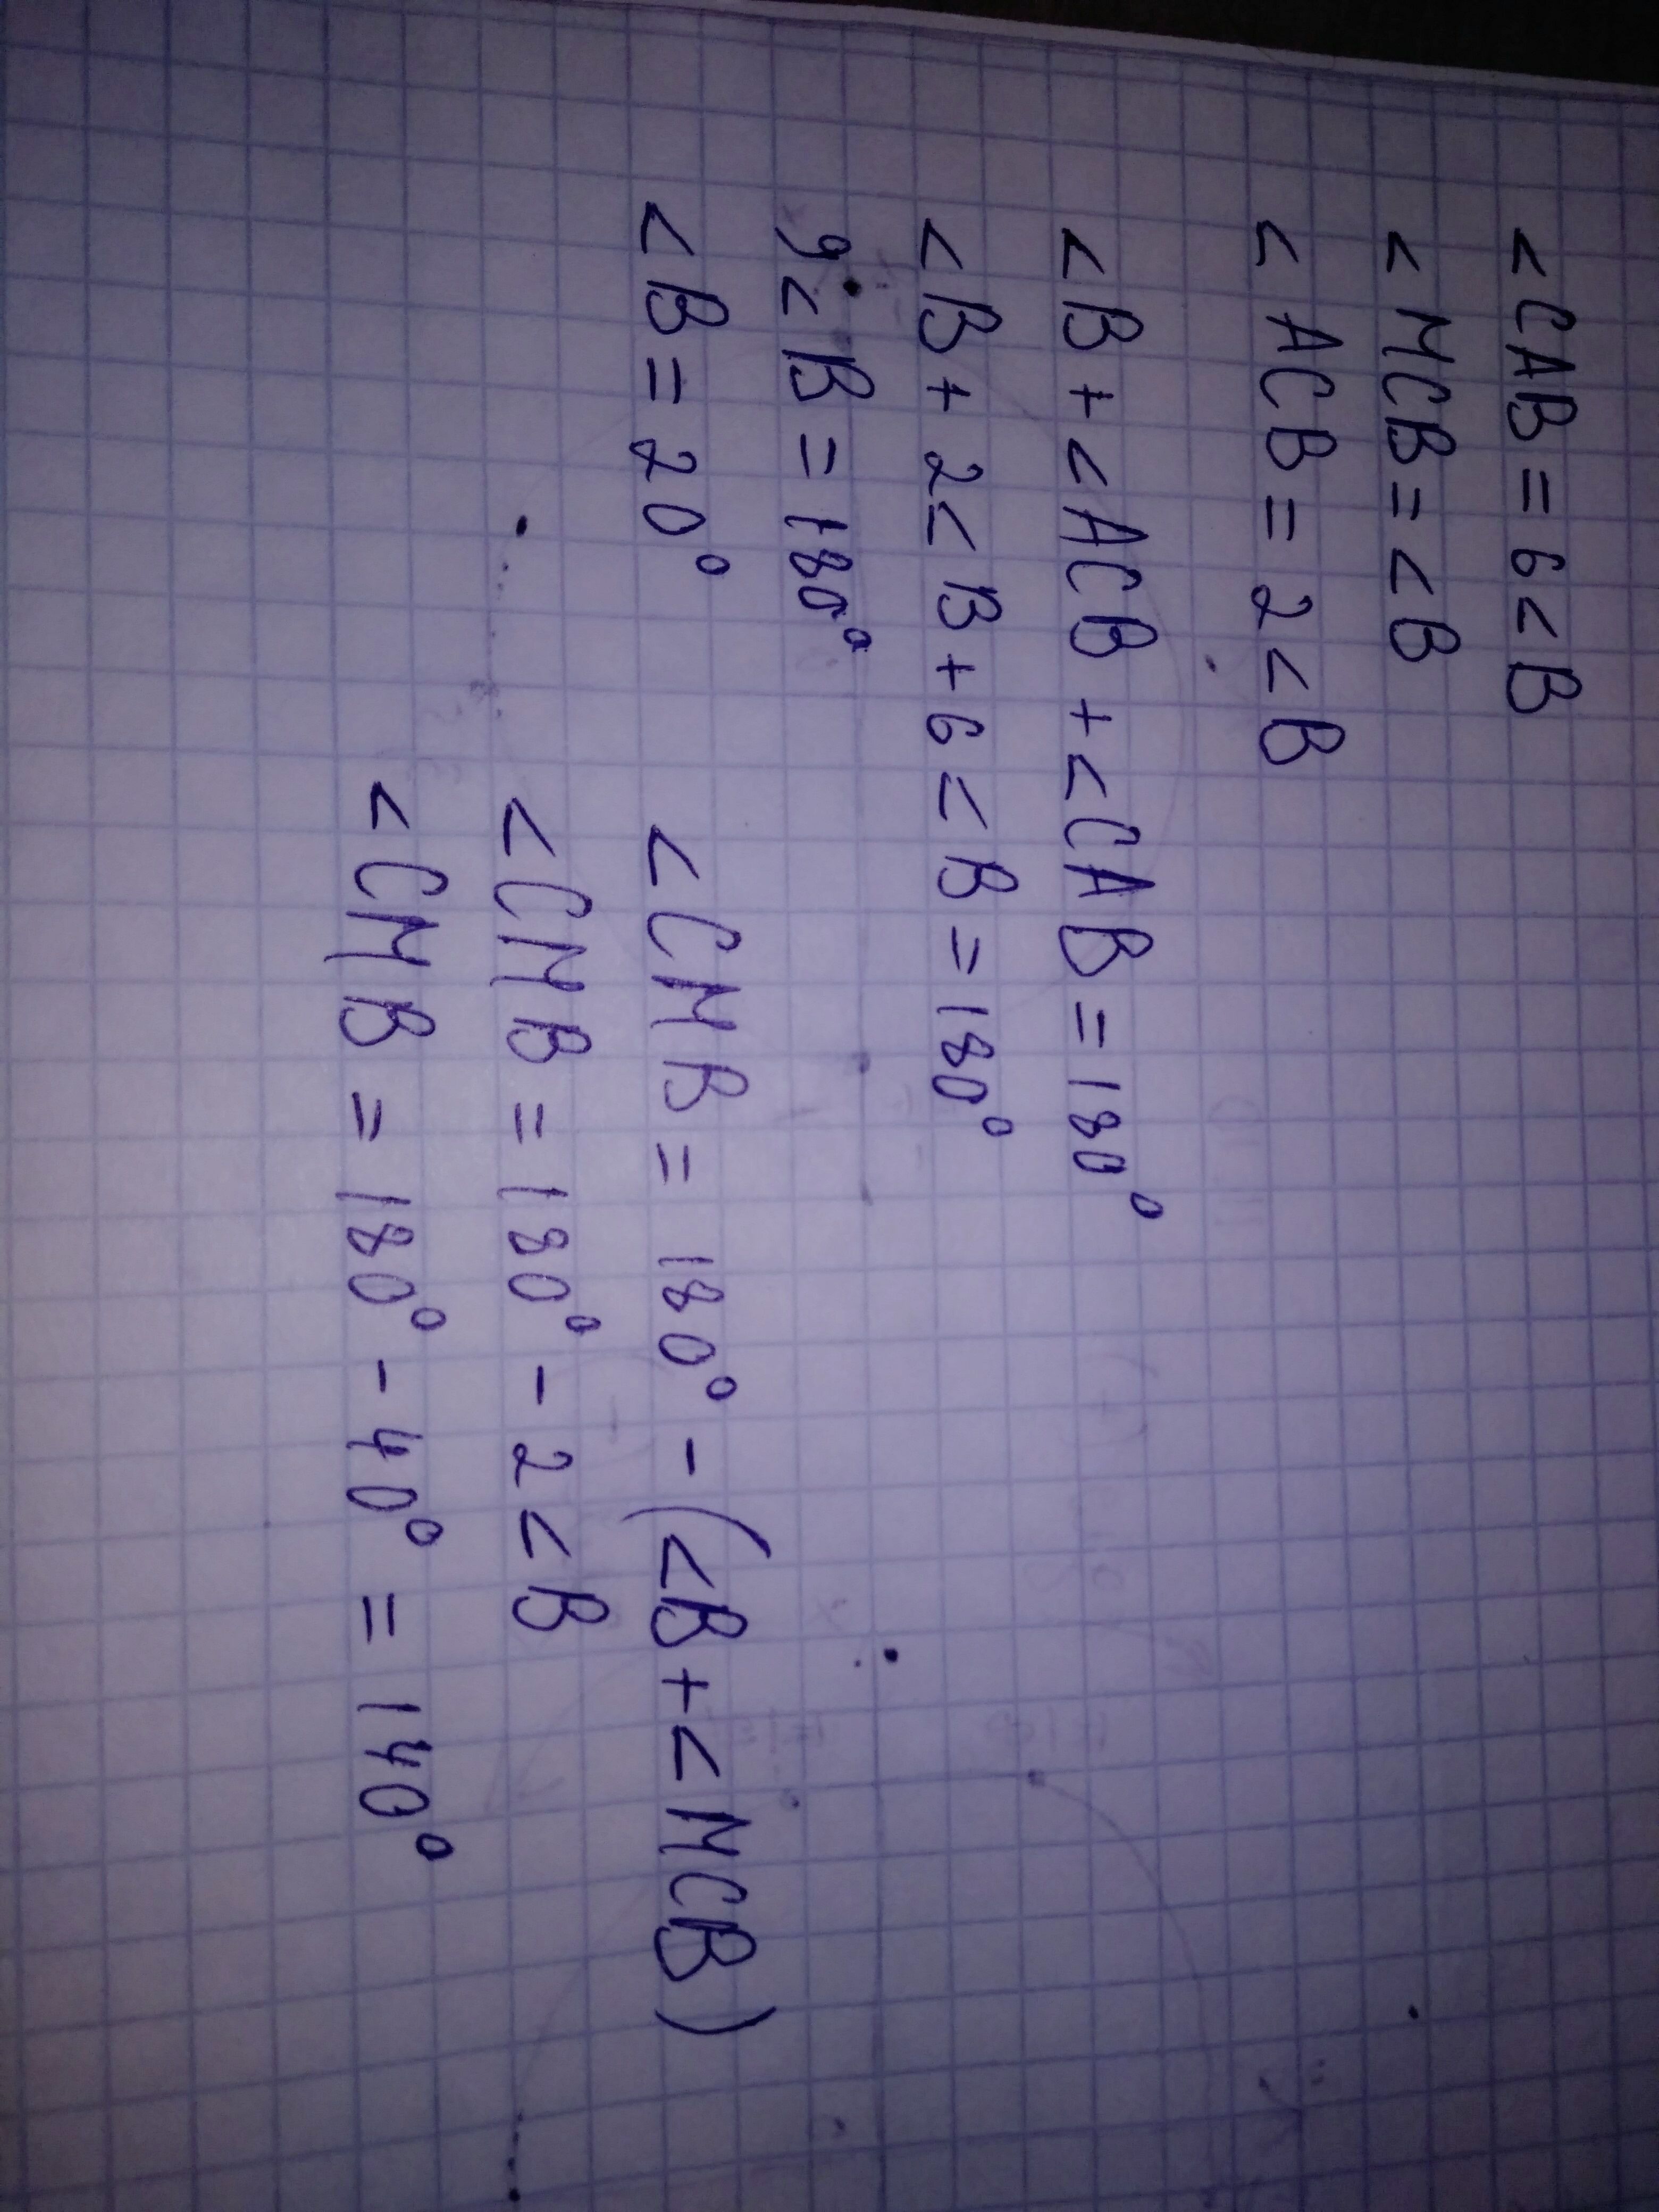 <CAB = 6<B
<MCB = <B
<ACB = 2<B
<B + <ACB + <CAB = 180°
<B + 2<B + 6<B = 180°
9<B = 180°
<B = 20°
<CMB = 180° - (<B + <MCB)
<CMB = 180° - 2<B
<CMB = 180° - 40° = 140°